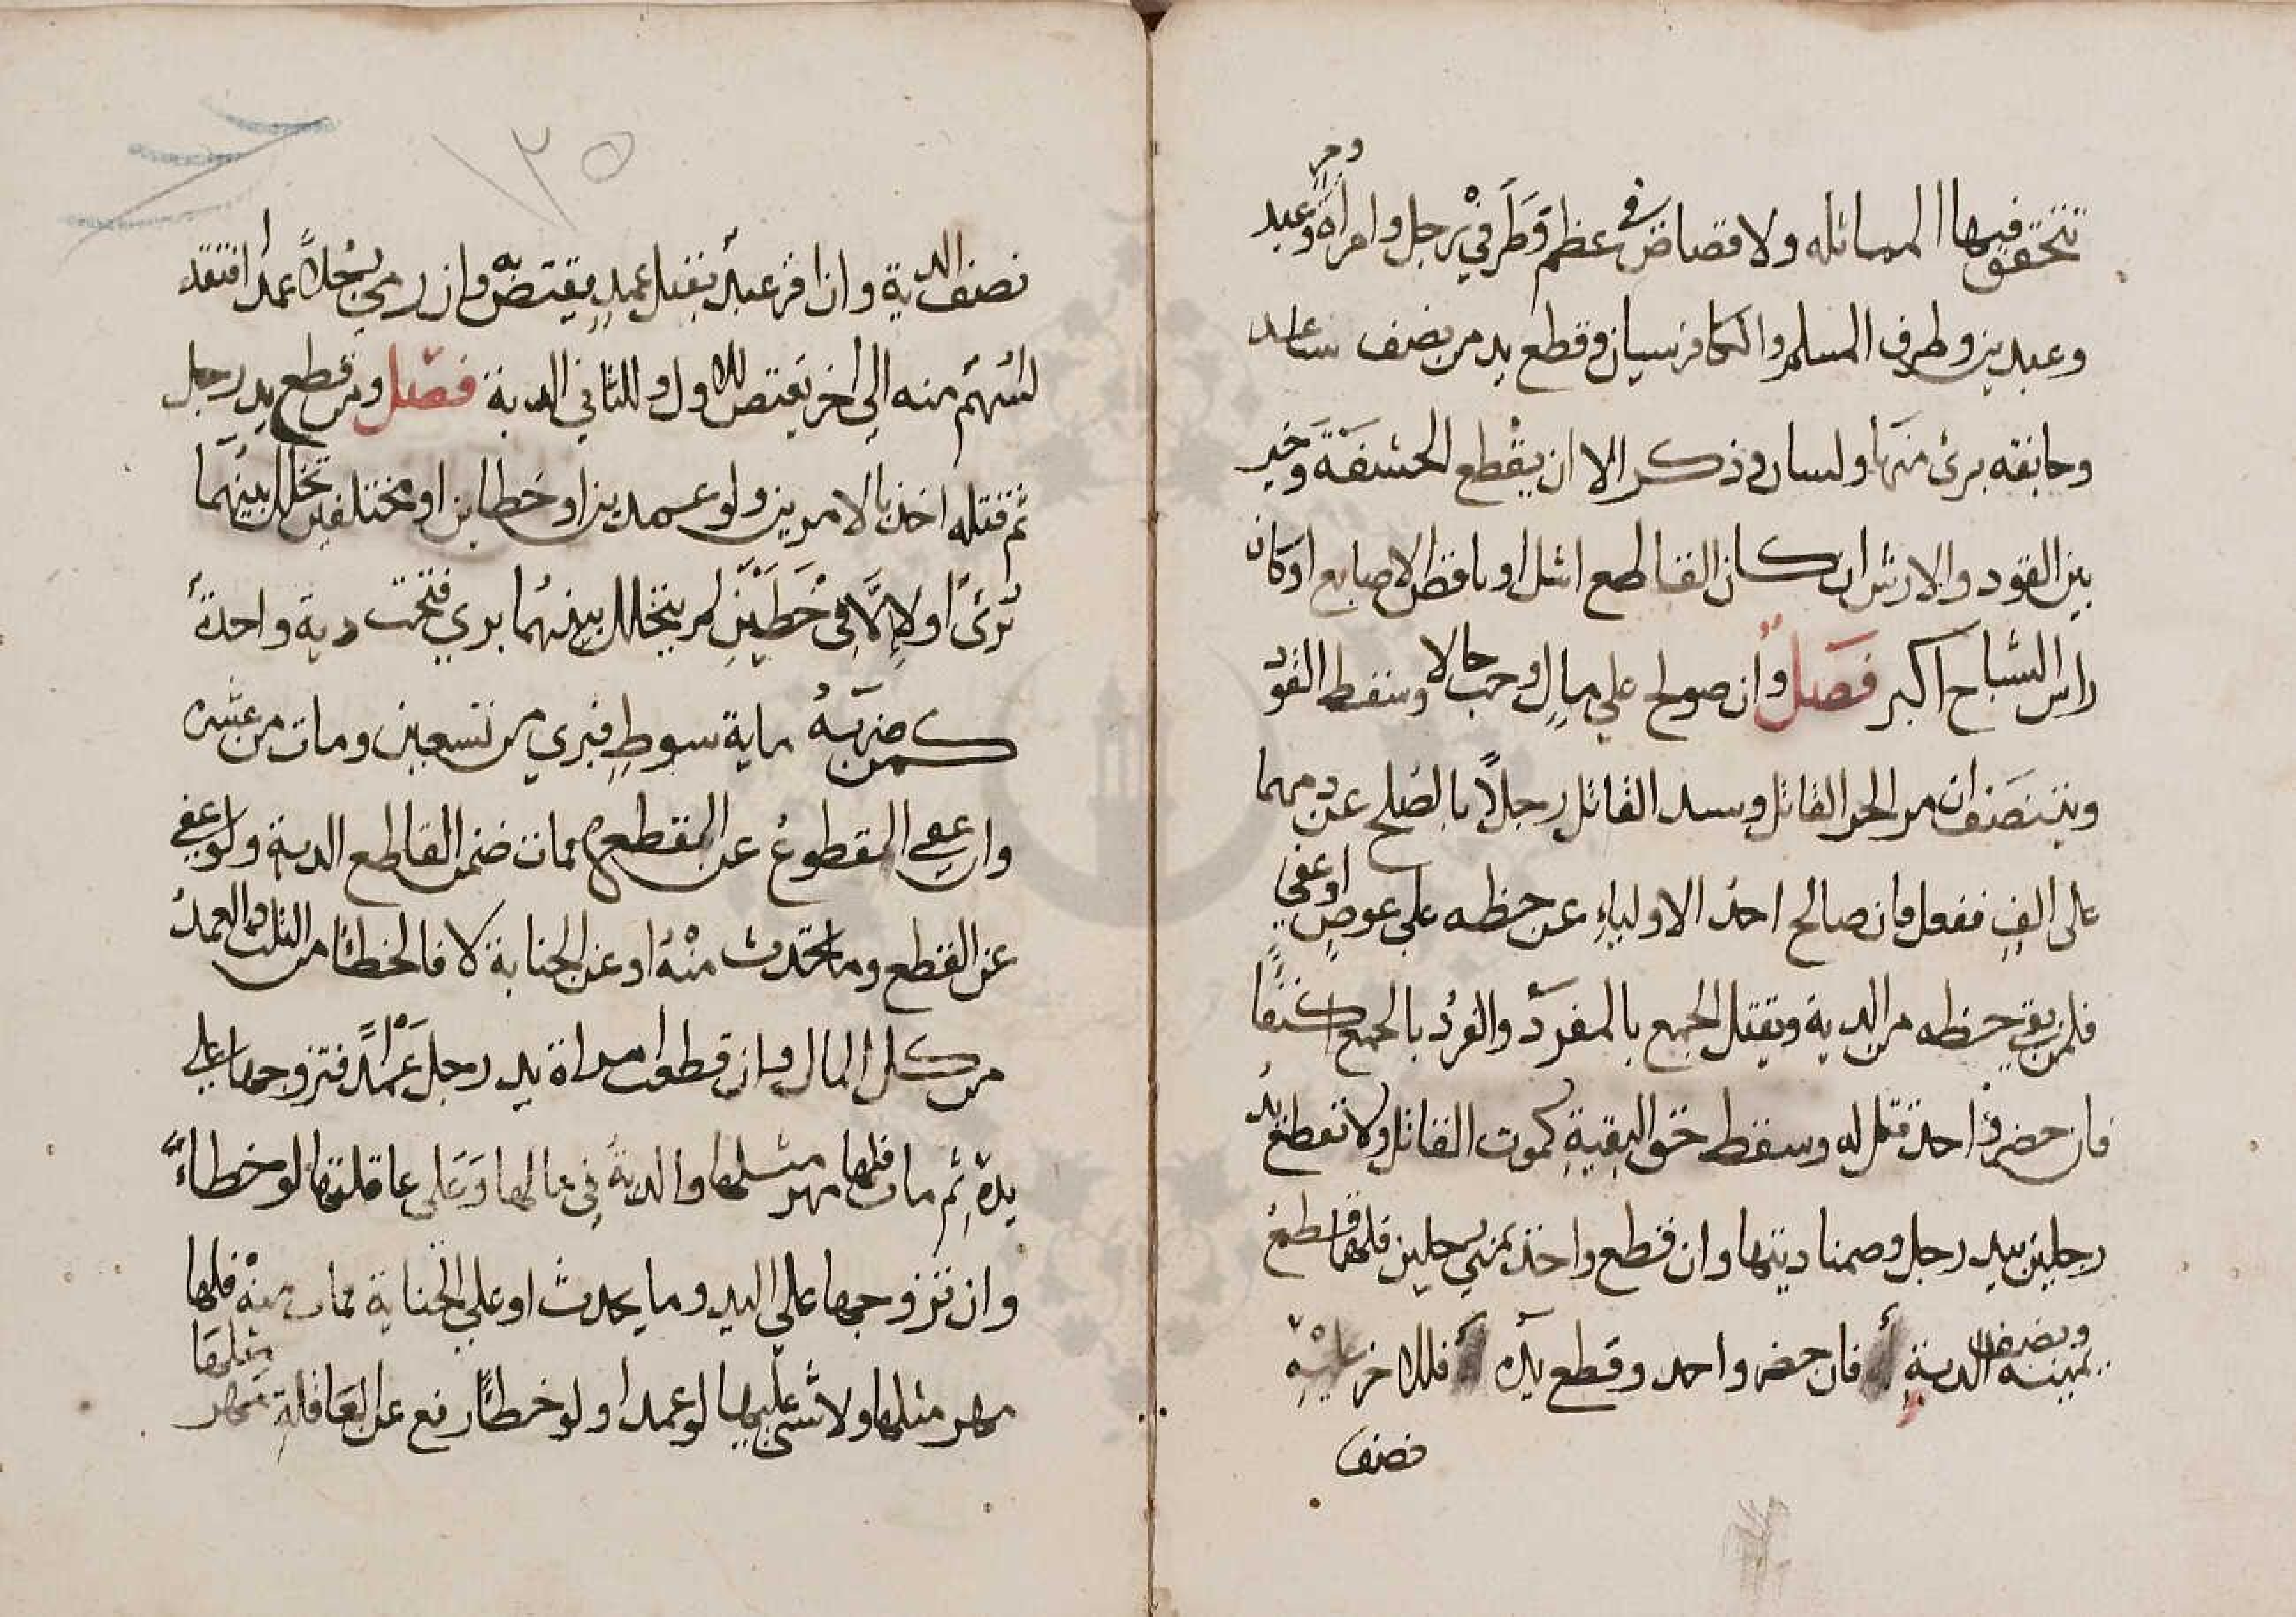 تتحقق فيها المماثله ولا قصاص في عظم وطرفي رجل وامراة وحر وعبد
وعبدين وطرف المسلم والكافر سيان وقطع يد من نصف ساعد
وجايفه برئ منها ولسان وذكر الا ان يقطع الحشفة وخير
بين القود والارش ان كان القاطع اشل او ناقص الاصابع او كان
راس الشاج اكبر فصل وان صولح علي مال وجب حالا وسقط القود
ويتنصف ان امر الحر القاتل وسيد القاتل رجلاً بالصلح عن دمهما
على الفٍ ففعل فان صالح احد الاولياءِ عن حظه علي عوضٍ او عفي
فلمن بقي حظه من الدية ويقتل الجمع بالمفرد والفرد بالجمع اكتفاً
فان حضر واحد قتل له وسقط حق البقيةِ كموت القاتل ولا تقطع يد
رجلين بيد رجل وضمنا ديتها وان قطع واحد يمني رجلين فلهما قطع
يمينه ونصف الدية فان حضر واحد وقطع يده فللاخر عليه
نصف
١٣٥
نصف الدية وان اقر عبدٌ بقتل عمدٍ يقتص به وان رمي رجلاً عمدا فنفد
السهم منه الي اخر يقتص للاول وللثاني الدية فصل ومن قطع يد رجل
ثم قتله اخذ بالامرين ولو عمدين او خطاين او مختلفين تخلل بينهما
برئٌ اولا إلاّ في خطَيَين لم يتخلل بينهما بري فتجب دية واحدةٌ
كمن ضربهُ ماية سوطٍ فبري من تسعين ومات من عشره
وان عفي المقطوعُ عن القطع فمات ضمن القاطع الدية ولو عفي
عن القطع وما يحدث منْهُ او عن الجناية لا فالخطأ من الثلث والعمدُ
من كل المال وان قطعت امراة يد رجل عمْداً فتزوجها علي
يده ثم مات فلها مهر مثلها والديةُ في مالها وَعَلى عاقلتها لو خطاءً
وان تزوجها علي اليد وما يحدث او علي الجناية فمات منْه فلها
مهر مثلها ولا شي عليها لو عمدا ولو خطأً رفع عن العاقلةِ مهر مثلها